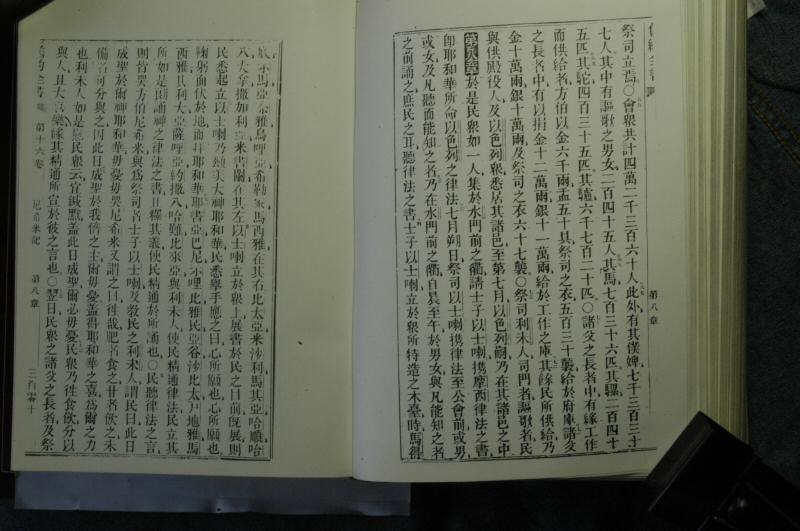 祭司立焉○會衆共計四萬二千三百六十人此外有其僕婢七千三百三十
七人其中有謳歌之男女二百四十五人其馬七百三十六匹其騾二百四十
五匹其駝四百三十五匹其驢六千七百二十匹○諸父之長者中有緣工作
而供給者方伯以金六千兩盂五十具祭司之衣五百三十襲給於府庫諸父
之長者中有以捐金十二萬兩銀十一萬兩給於工作之庫其餘民所供給乃
金十萬兩銀十萬兩及祭司之衣六十七襲○祭司利未人司門者謳歌者民
與供殿役人及以色列衆悉居其諸邑至第七月以色列嗣乃在其諸邑之中
第八章於是民衆如一人集於水門前之衢請士子以士喇携摩西律法之書
卽耶和華所命以色列之律法七月朔日祭司以士喇携律法至公會前或男
或女及凡聽而能知之者乃在水門前之衢自晨至午於男女與凡能知之者
之前誦之庶民之耳聽律法之書士子以士喇立於衆所特造之木臺時馬得
第八章
氐水馬亞奈雅烏哩亞希勒家馬西雅在其右比太亞米沙利馬其亞哈順哈
八大拿撒加利亞米書闌在其左以士喇立於衆上展書於民之目前旣展則
民悉起立以士喇乃頌美大神耶和華民悉舉手應之曰心所願也心所願也
鞠躬面伏於地而拜耶和華耶書亞巴尼示哩比雅民亞谷沙比太戶地雅馬
西雅其利大亞薩哩亞約撒八哈難比來亞與利未人使民精通律法民立其
所如是因誦神之律法之書且釋其義使民精通於所誦也○民聽律法之言
則皆哭方伯尼希米與爲祭司者士子以士喇及敎民之利未人謂民曰此日
成聖於爾神耶和華毋憂毋哭尼希米又謂之曰往哉肥者食之甘者飮之未
備者可分與之因此日成聖於我儕之主爾毋憂蓋得耶和華之喜爲爾之力
也利未人如是慰民衆云宜緘默蓋此日成聖爾必毋憂民衆乃往食飮分以
與人且大喜樂緣其精通所宣於彼之言也○翌日民衆之諸父之長者及祭
第十六卷
尼希米記
第八章
三百零十